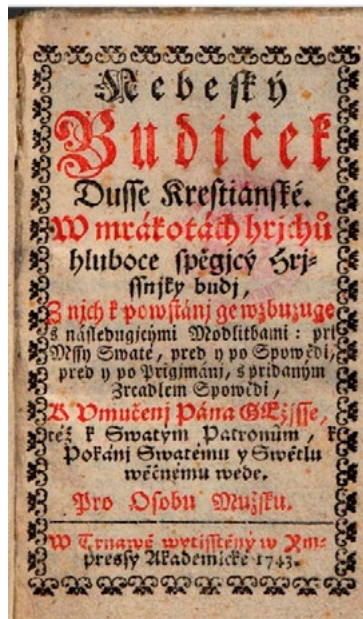 Nebeſký
Budíček
Duſſe Kreſtianſké.
W mrákotách hrjchů
hluboce ſpěgjcý Hrj-
ſſnjky budj,
Z njch k powſtánj ge wzbuzuge
s náſledugjcými Modlitbami: pri
Mſſy Swaté, pred y po Spowědi,
pred y po Prigjmánj, s pridaným
Zrcadlem Spowědi,
K Vmučenj Pána GEžjſſe,
též k Swatým Patronům, k
Pokánj Swatému y Swětlu
wěčnému wede.
Pro Oſobu Mužſku.
W Trnawě wytiſſtěný w Jm-
preſſy Akademické 1743.